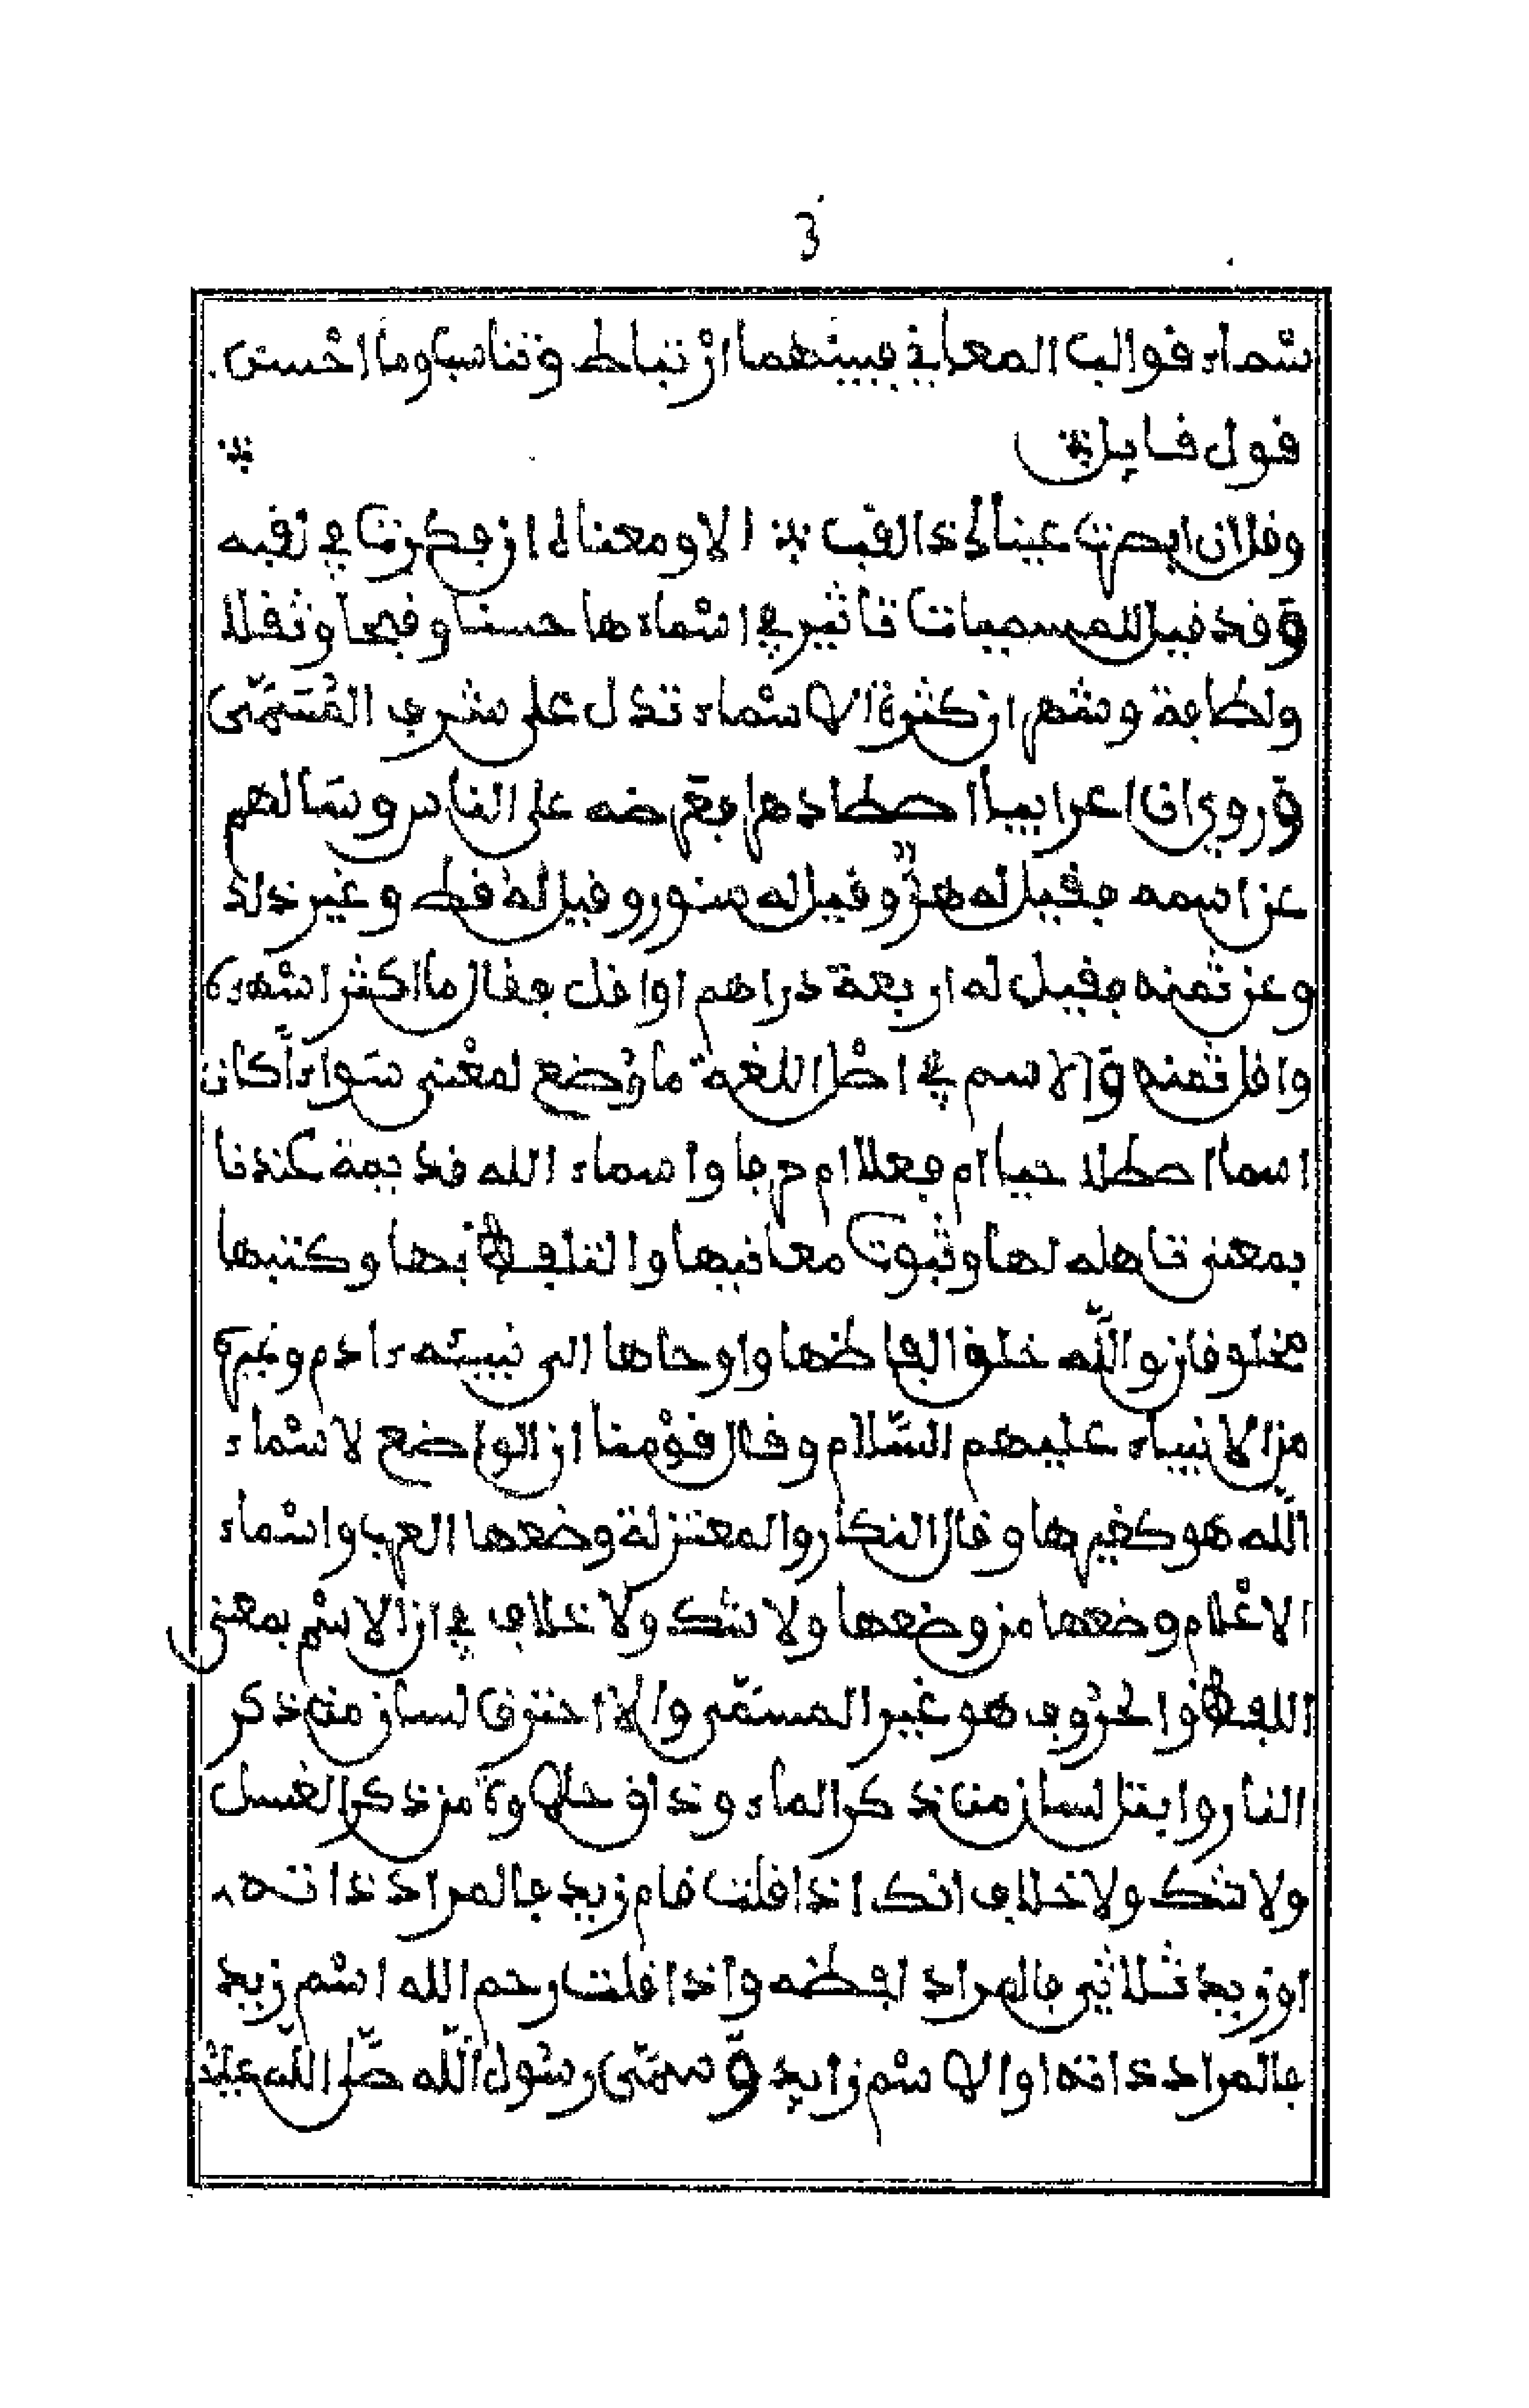 3
سْماء قوالب المعاني فبينهما ارْتباط وتناسب وما احْسن
قول قايل
وقل ان ابصرت عيناك ذا لقب الا ومعناه ان فكرت في لقبه
وقد قيل للمسميات تاثير في اسْماءها حسنا وقبحا وثقلا
ولطافة وشهر ان كثرة الاسْماء تدل على شرف المُسَمّى
وروي ان اعرابيا اصطاد هرا فعرضه على الناس وسَالهم
عن اسمه فقيل له هرٌّ وقيل له سنور وقيل له قط وغير ذلك
وعن ثمنه فقيل له اربعة دراهم او اقل فقال ما اكثر اسْمه
واقل ثمنه والاسم في اصْل اللغة ما وُضع لمعْنى سَواء أكان
اسما اصطلاحيا ام فعلا ام حرفا واسماء الله قديمة عندنا
بمعنى تاهله لها وثبوت معانيها والتلفظ بها وكتبها
مخلوقان والله خلق الفاظها واوحاها الى نبيئه ءادم وغيره
من الانبياء عليهم السّلام وقال قوْمنا ان الواضع لاسْماء
الله هو كغيرها وقال النكار والمعتزلة وضعها العرب واسْماء
الاعْلام وضعها من وضعها ولا شك ولا خلاف في ان الاسْم بمعنى
اللفظ والحرُوف هو غير المسَمّى والا احترق لسان من ذكر
النار وابتل لسان من ذكر الماء وذاق حلاوة من ذكر العسل
ولا شك ولا خلاف انك اذا قلت قام زيد فالمراد ذاته
او زيد ثلاثي فالمراد لفظه واذا قلت رحم الله اسْم زيد
فالمراد ذاته او الاسْم زايد وسمّى رسُول الله صَلى الله عليْه